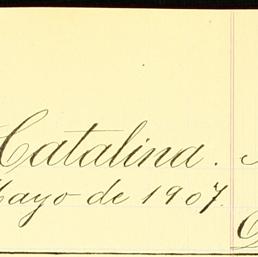 Catalina.
Mayo de 1907.